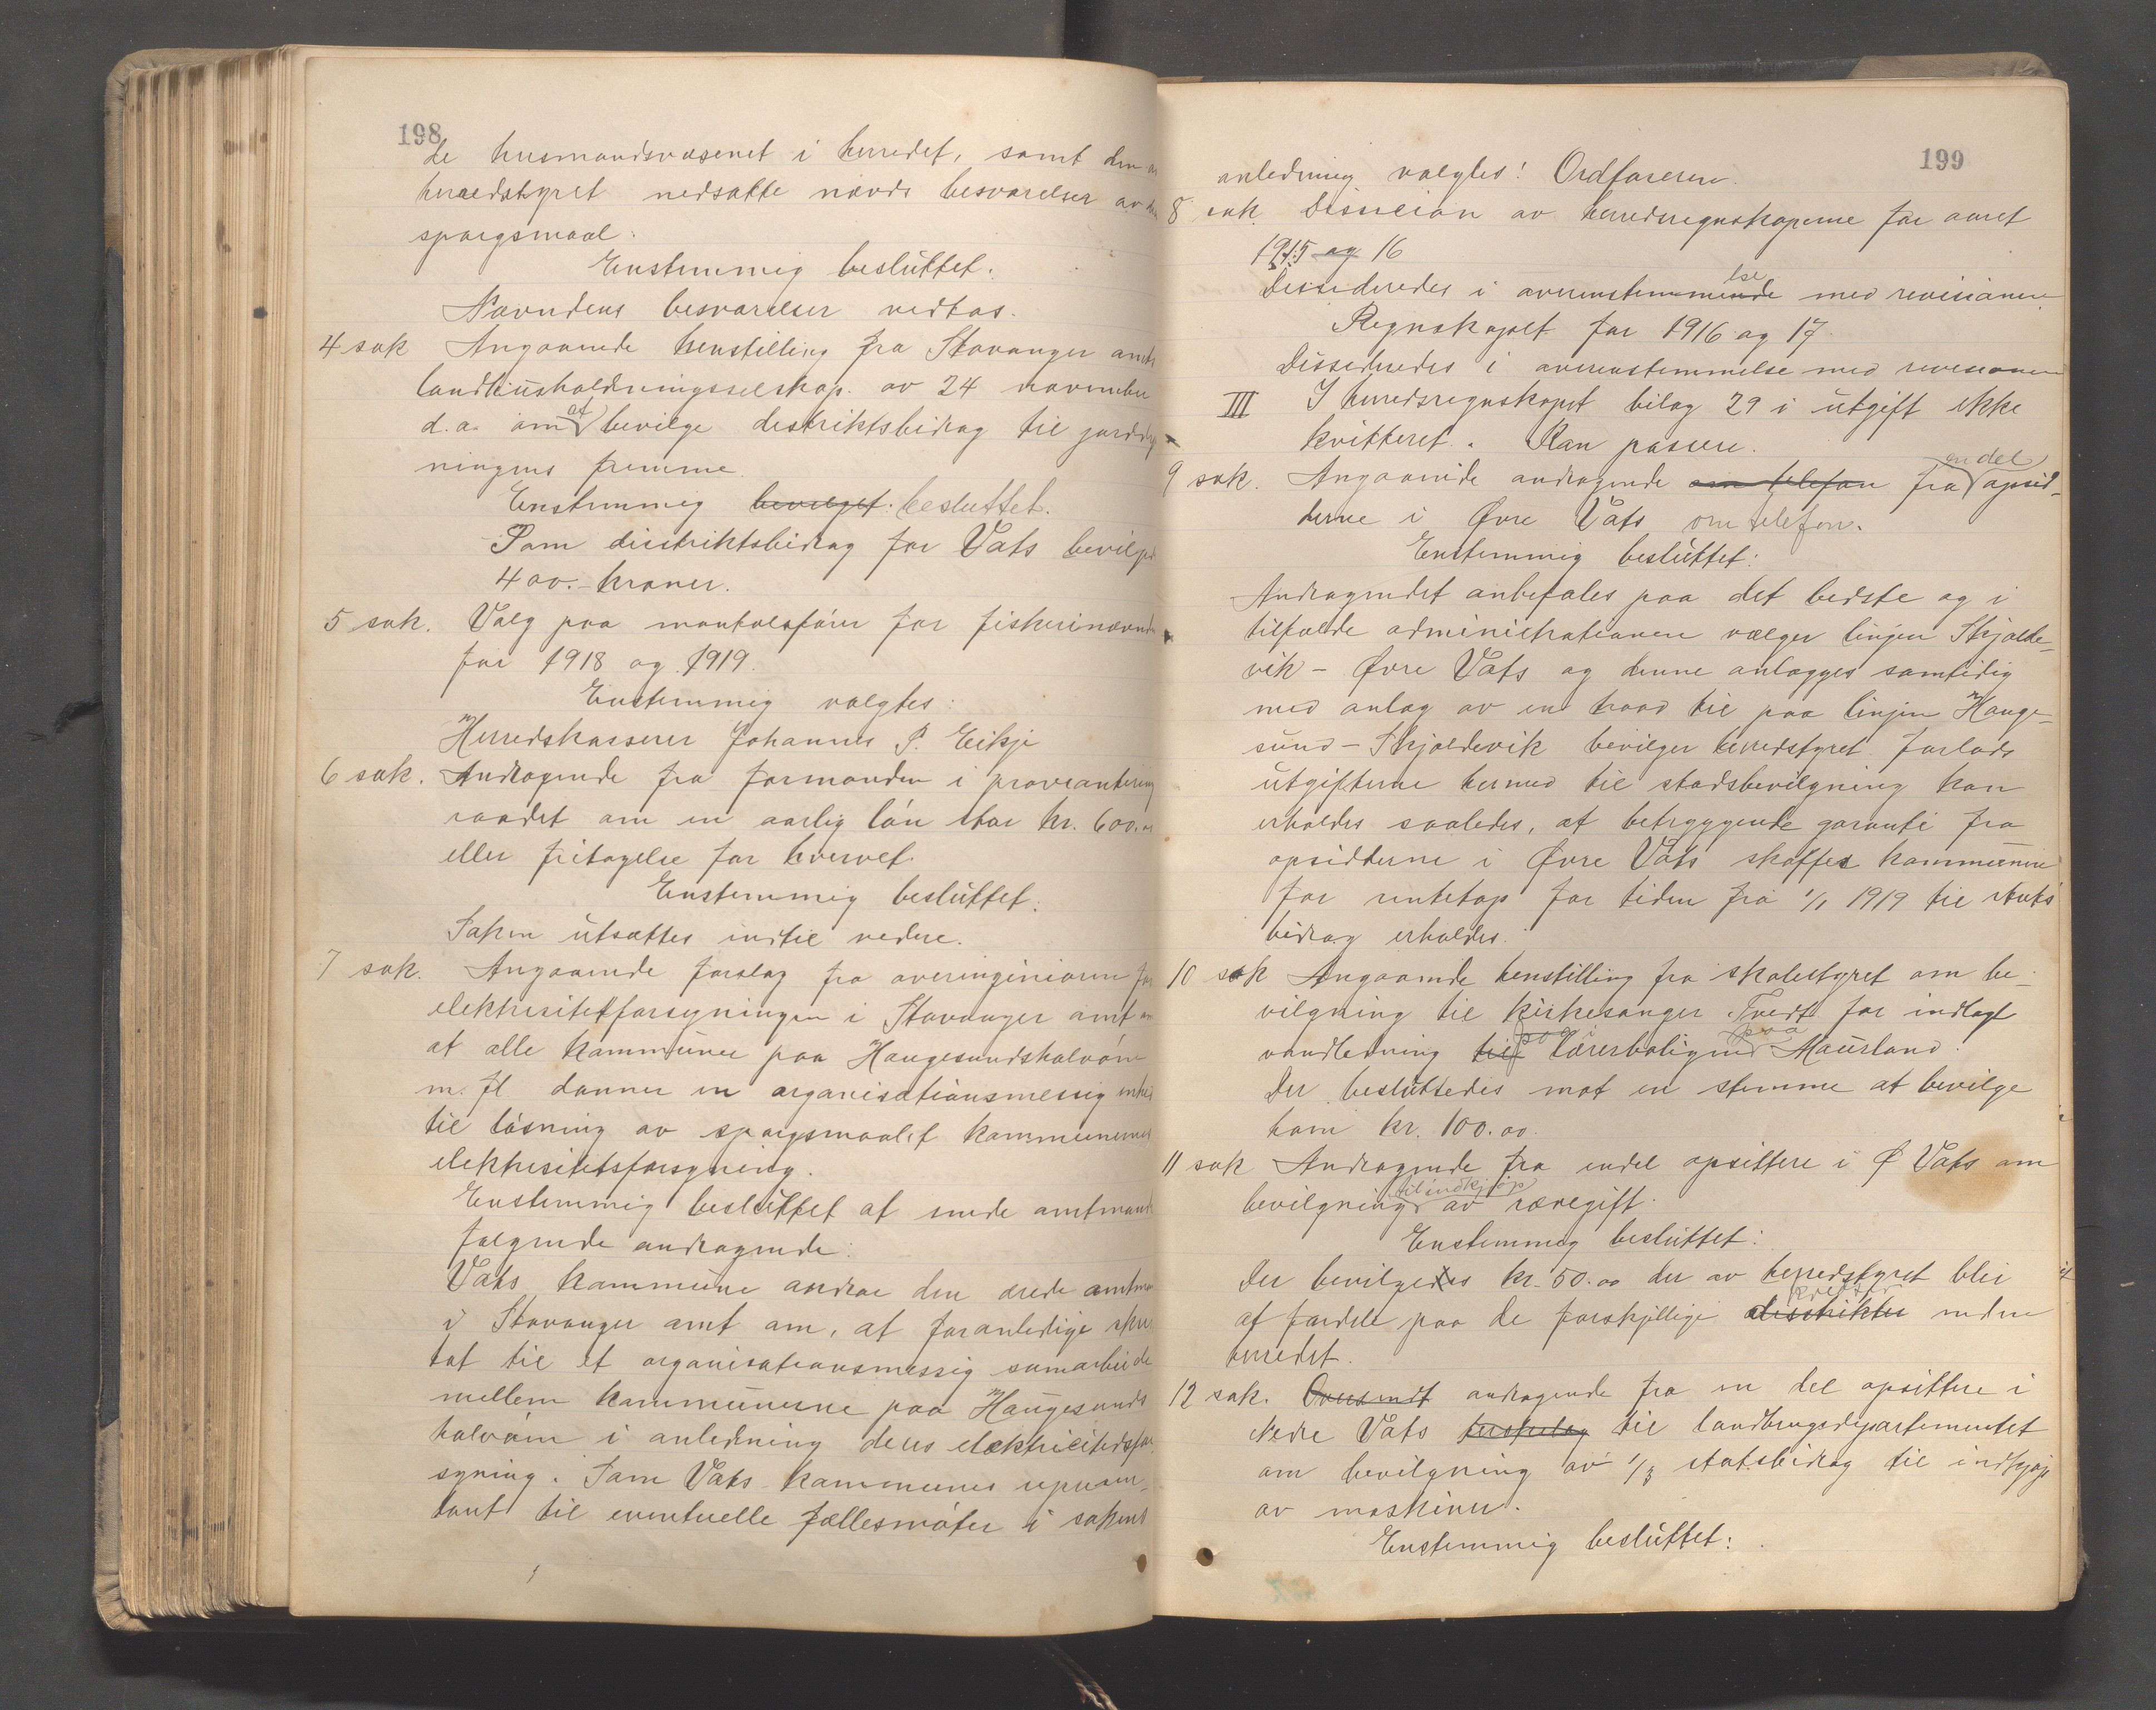 198
de husmandsvæsenet i herredet, samt den
heraedstyret nedsatte nævds besvarelser av
spørgsmaal:
Enstemmig besluttet:
Nævndens besvarelser vedtas.
4 sak Angaaende henstilling fra Stavanger amts
landhusholdningsselskap av 24 november
d.a. om at bevilge destriktsbidrag til jorddyrk
ningens fremme
Enstemmig bevilget: besluttet.
Som disstriktsbidrag for Vats bevilges
400.- kroner.
5 sak. Valg paa mantalsfører for fiskerinævnd
for 1918 og 1919.
Enstemmig valgtes:
Herredskasserer Johannes P. Eikje
6 sak. Andragende fra formanden i provianterings
raadet om en aarlig løn stor kr. 600.00
eller fritagelse for hvervet.
Enstemmig besluttet:
Saken utsættes indtil videre.
7 sak. Angaaende forslag fra overingeniøren for
elektrisitetforsyningen i Stavanger amt om
at alle kommuner paa Haugesundshalvøen
m. fl. danner en organisationsmessig enhed
til løsning av spørgsmaalet kommunernes
elektrisitetsforsyning.
Enstemmig besluttet at sende amtmanden
følgende andragende:
Vats kommune andrar den ærede amtmand
i Stavanger amt om, at foranledige skri
tat til et organisationsmessig samarbeide
mellem kommunerne paa Haugesunds
halvøen i anledning deres elektricitedsfor
syning. Som Vats kommunes repræsen-
tant til eventuelle fællesmøter i sakens
199
anledning valgtes: Ordføreren.
8 sak. Desission av herredsregnskaperne for aaret
1915 og 16
Dessideredes i overenstemmende lse med revisionen
Regnskapet for 1916 og 17.
Dissideredes i overenstemmelse med revesionen
III I herredsregnskapet bilag 29 i utgift ikke
kvitteret. Kan pasere.
9 sak. Angaaende andragende om telefon fra en del opsid-
derne i Øvre Vats om telefon.
Enstemmig besluttet:
Andragendet anbefales paa det bedste og i
tilfælde administrationen vælger linjen Skjolde-
vik - Øvre Vats og denne anlægges samtidig
med anlæg av en traad til paa linjen Hauge-
sund - Skjoldevik bevilger herredstyret forlods
utgifterne hermed til stadsbevilgning kan
erholdes saaledes, at betryggende garanti fra
opsidderne i Øvre Vats skaffes kommunen
for rentetap for tiden fra 1/1 1919 til stats
bidrag erholdes.
10 sak Angaaende henstilling fra skolestyret om be-
vilgning til kirkesanger Tvedt for indlagt
vandledning til paa lærerboligen paa Maursland.
Der besluttedes mot en stemme at bevilge
ham kr. 100.00.
11 sak Andragende fra endel opsittere i Ø Vats om
bevilgning til indkjøp av rævegift.
Enstemmig besluttet:
Der bevilgedes kr. 50.00 der av herredstyret blir
at fordele paa de forskjellige disstrikter kredser inden
herredet.
12 sak. Oversendt andragende fra en del opsittere i
Nedre Vats til landbrugsdepartementet
om bevilgning av 1/3 statsbidrag til indkjøp
av maskiner.
Enstemmig besluttet: